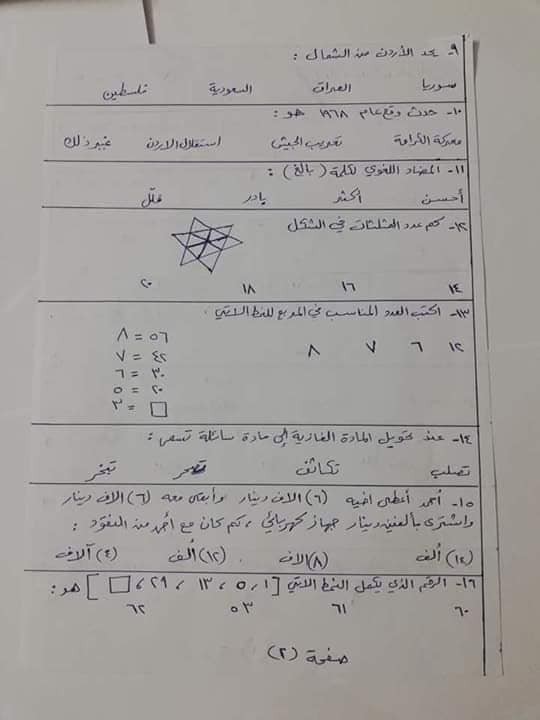 ٩- يحد الأردن من الشمال :
سوريا العراق السعودية فلسطين
١٠- حدث وقع عام ١٩٦٨ هو :
معركة الكرامة تعريب الجيش استقلال الاردن غير ذلك
١١- المضاد اللغوي لكلمة ( بالغ ) :
أحسن أكثر بادر قلّل
١٢- كم عدد المثلثات في الشكل
١٤ ١٦ ١٨ ٢٠
١٣- اكتب العدد المناسب في المربع للنمط الآتي
١٢ ٦ ٧ ٨
٥٦ = ٨
٤٢ = ٧
٣٠ = ٦
٢٠ = ٥
□ = ٣
١٤- عند تحويل المادة الغازية إلى مادة سائلة تسمى :
تصلب تكاثف تبخر
١٥- أحمد أعطى اخيه (٦) الاف دينار وأبقى معه (٦) الاف دينار
واشترى بألفين دينار جهاز كهربائي ، كم كان مع أحمد من النقود :
(١٤) ألف (٨) الاف (١٢) ألف (٤) آلاف
١٦- الرقم الذي يكمل النمط الاتي [ ١ ، ٥ ، ١٣ ، ٢٩ ، □ ] هو :
٦٠ ٦١ ٥٣ ٦٢
صفحة (٢)